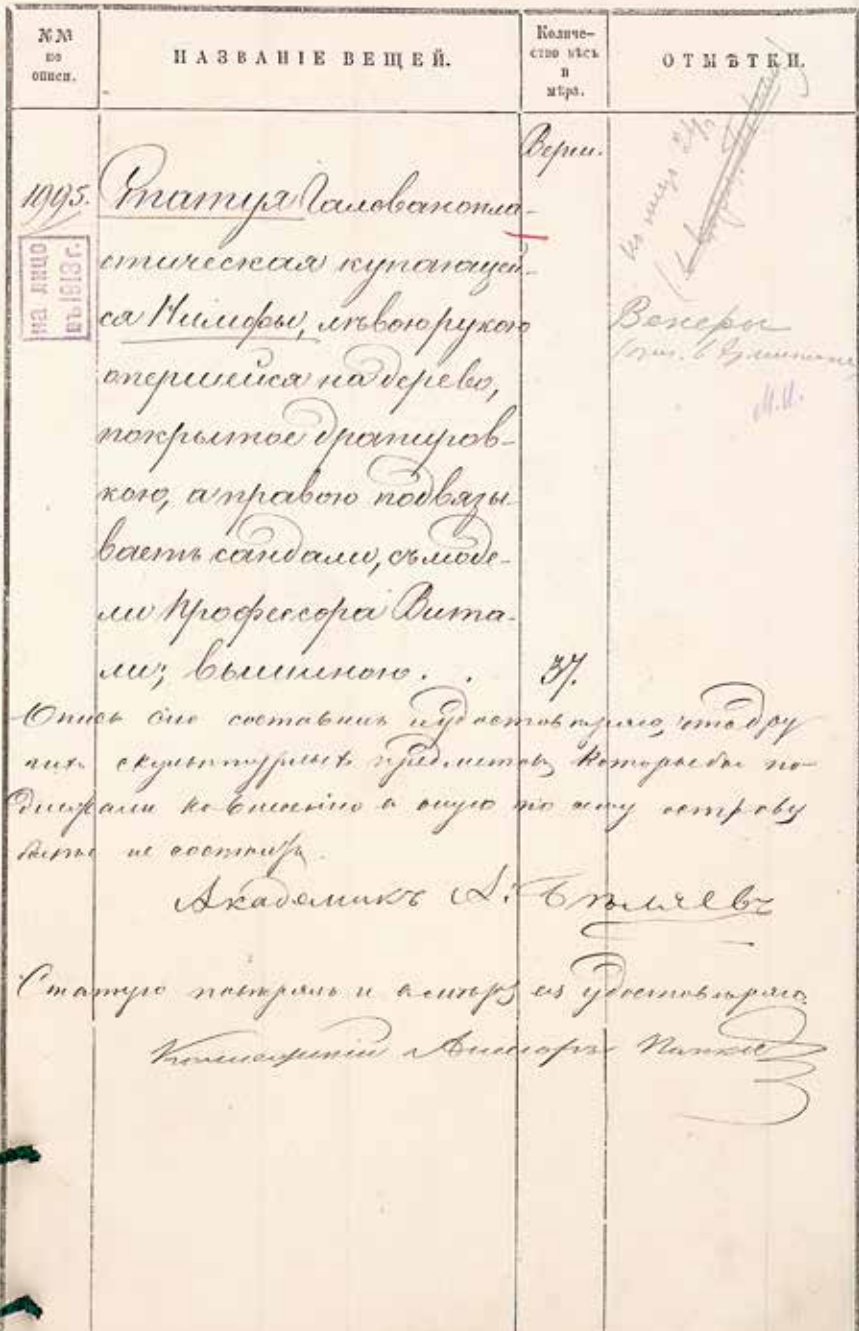 №№
по
описи.
НАЗВАНІЕ ВЕЩЕЙ.
Количе-
ство вѣсъ
и
мѣра.
ОТМѢТКИ.
Верш.
1995.
на лицо
въ 1913 г.
Статуя Галованопла-
стическая купающей-
ся Нимфы, лѣвою рукою
опершейся на дерево,
покрытое драпиров-
кою, а правою подвязы-
ваетъ сандали, съ моде-
ли Профессора Вита-
ли; вышиною . . 37.
Венеры
М.И.
Опись сію составилъ и удостовѣряю, что дру
гихъ скульптурныхъ предметовъ которые бы по-
длежали ко внесенію в оную по сему острову
болѣе не состоитъ.
Академикъ А. Бѣляевъ
Статую повѣрялъ и осмотръ ея удостовѣряю.